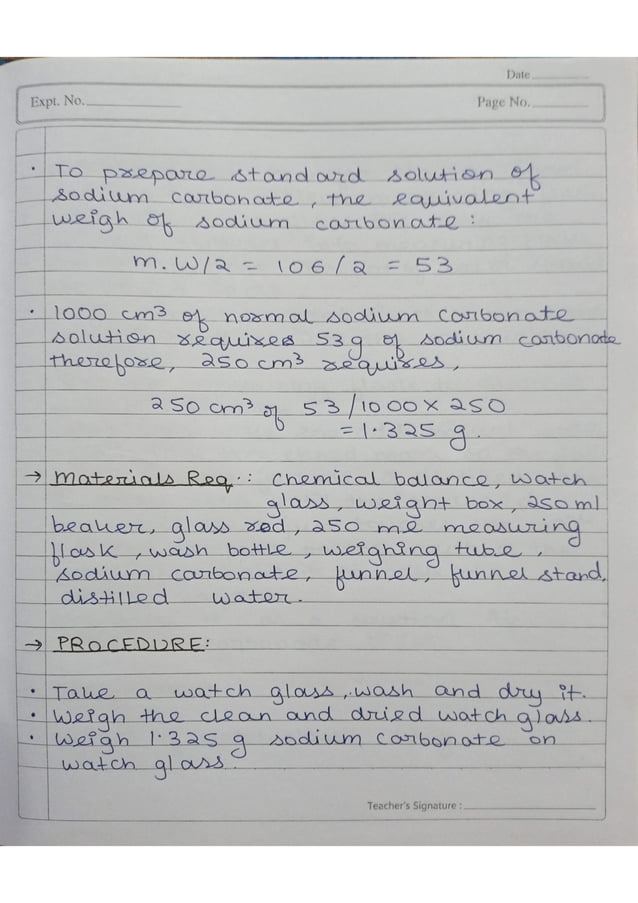 Date
Expt. No.
Page No.
• To prepare standard solution of
sodium carbonate, the equivalent
weigh of sodium carbonate :
m. W/2 = 106/2 = 53
• 1000 cm³ of normal sodium carbonate
solution requires 53 g of sodium carbonate
therefore, 250 cm³ requires,
250 cm³ of 53/1000 × 250
= 1.325 g.
→ Materials Req.: Chemical balance, watch
glass, weight box, 250 ml
beaker, glass rod, 250 ml measuring
flask, wash bottle, weighing tube,
sodium carbonate, funnel, funnel stand,
distilled water.
→ PROCEDURE:
• Take a watch glass, wash and dry it.
• Weigh the clean and dried watch glass.
• Weigh 1.325 g sodium carbonate on
watch glass.
Teacher's Signature :